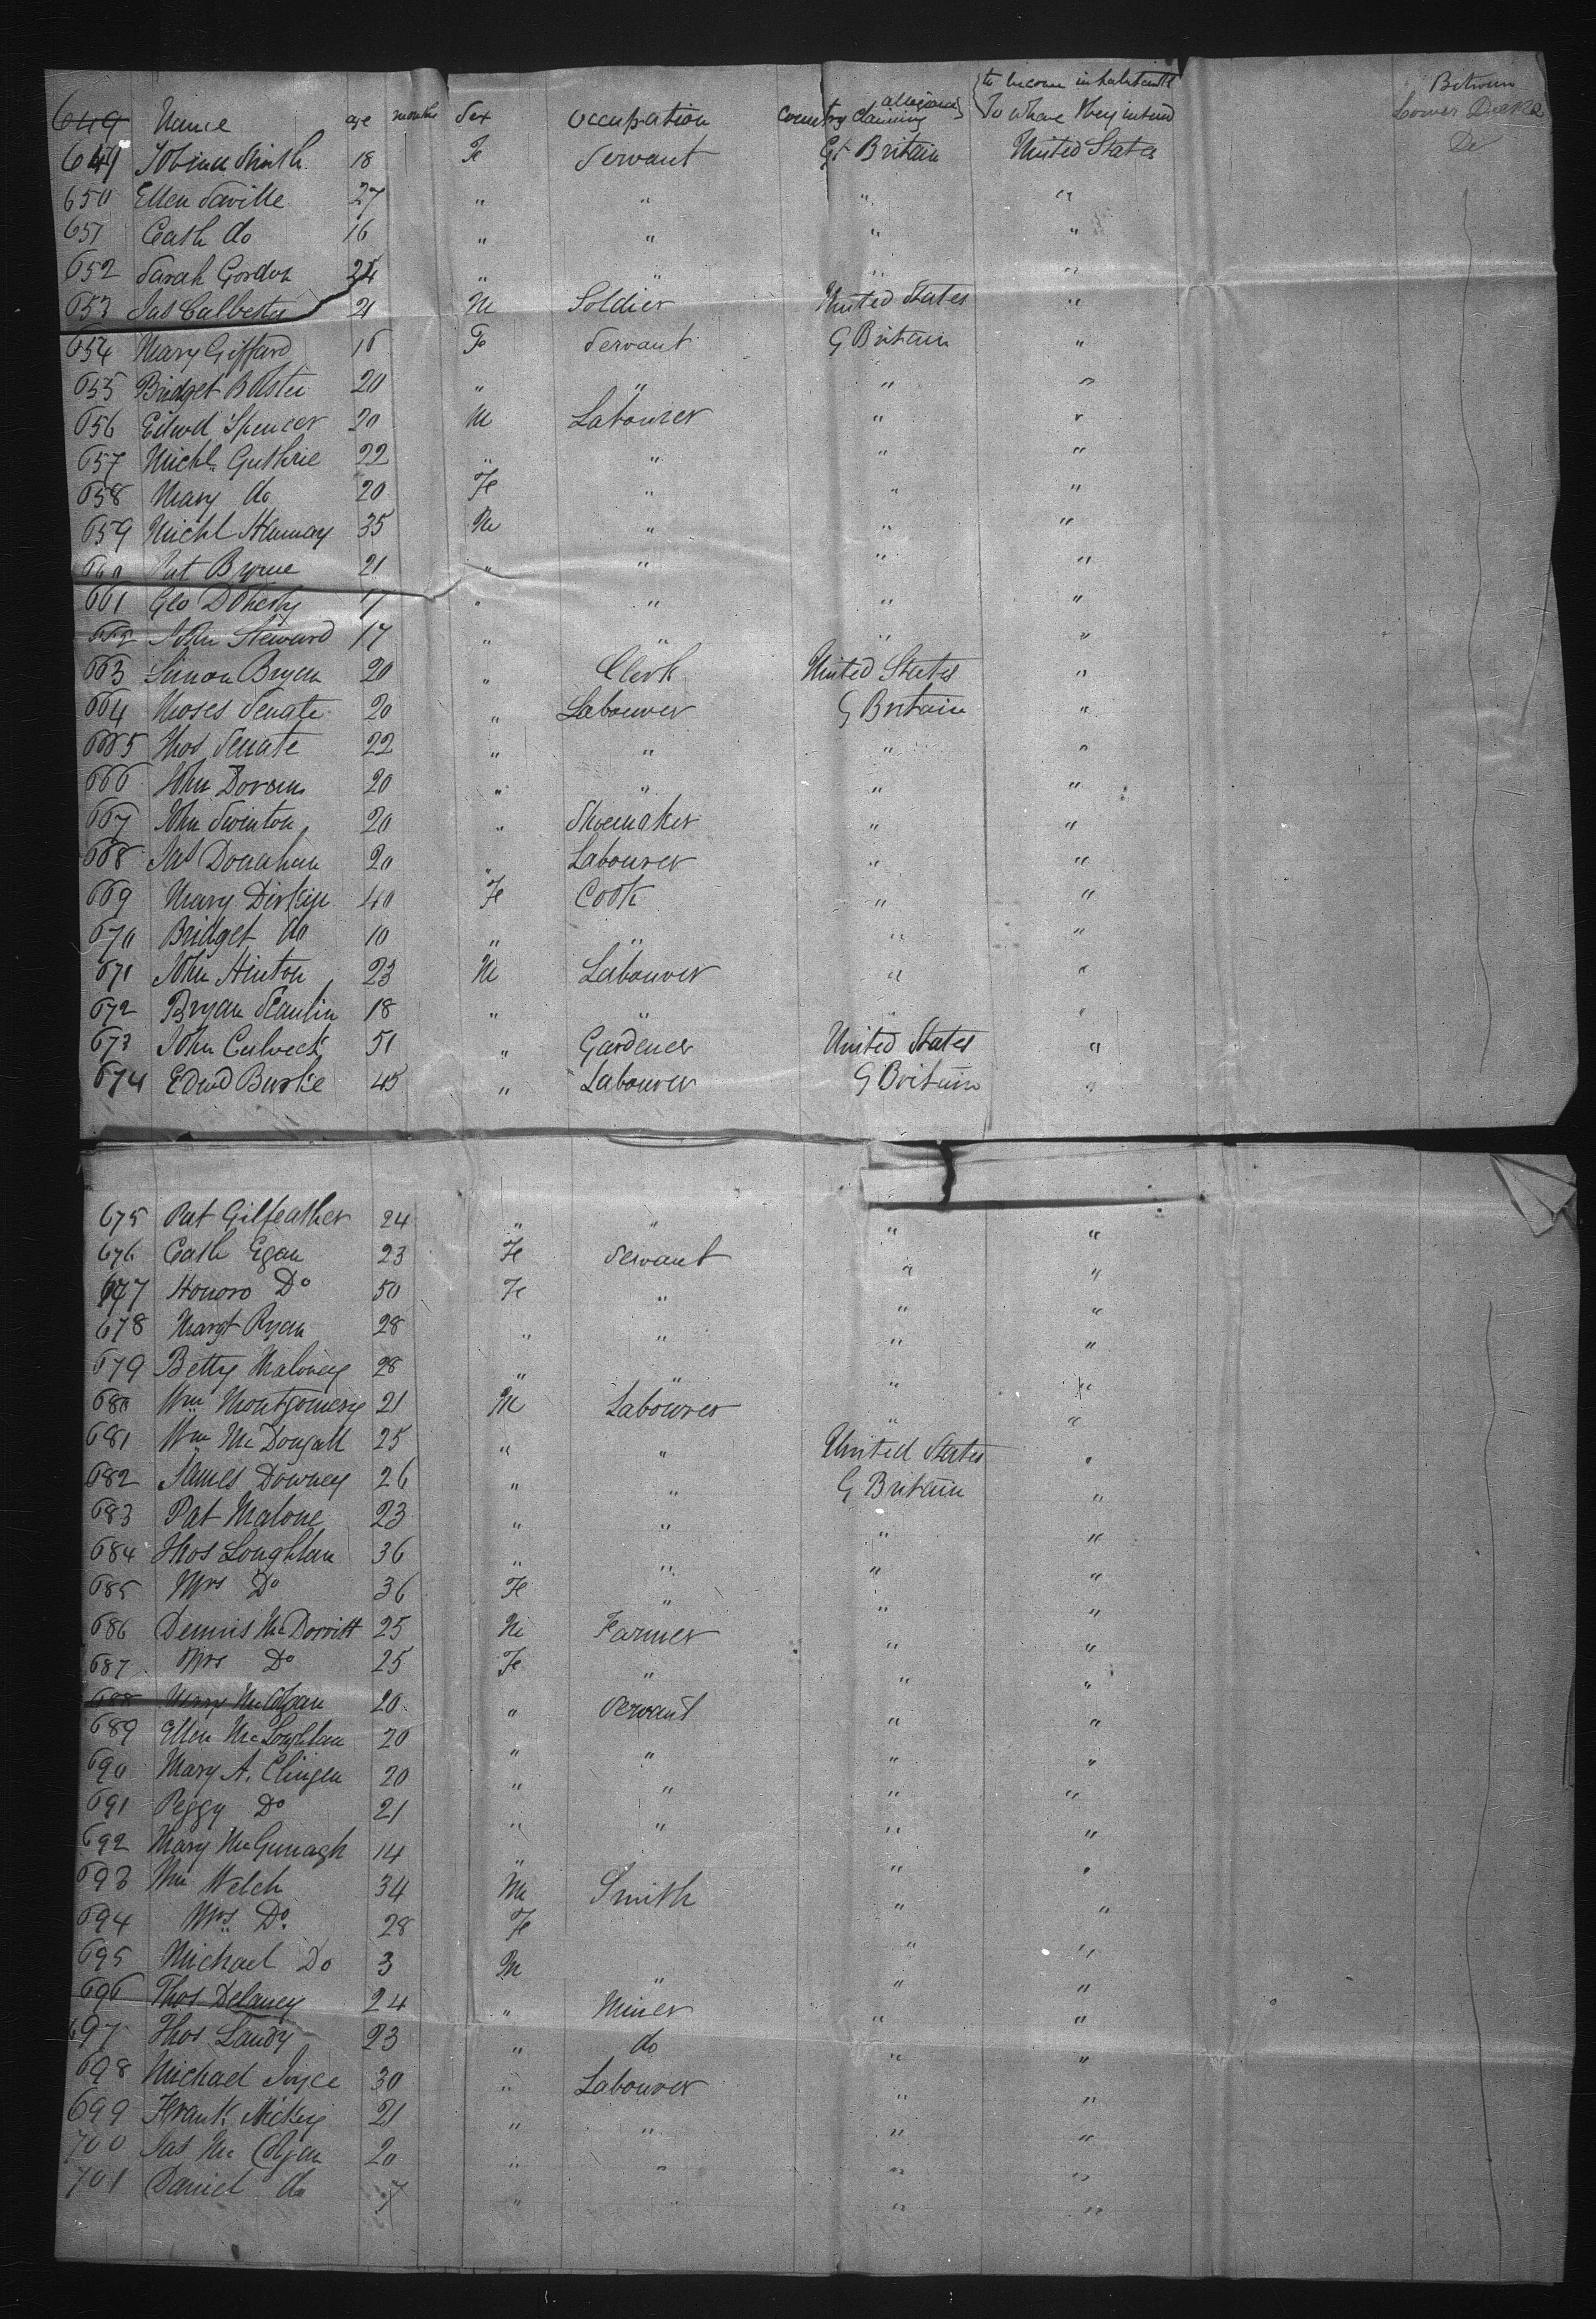 649 Name age months Sex Occupation Country claiming allegiance To where they intend to become inhabitants Between Lower Decks
649 Smith 18 Fe Servant Gt Britain United States Do
650 Ellen Saville 27 " " " "
651 Cath do 16 " " " "
652 Sarah Gordon 24 " " " "
653 Jas 21 M Soldier United States "
654 Mary Giffard 16 Fe Servant G Britain "
655 Bridget 20 " " " "
656 Edwd Spencer 20 M Labourer " "
657 Michl Guthrie 22 " " " "
658 Mary do 20 Fe " " "
659 Michl 35 M " " "
660 Pat Byrne 21 " " " "
661 Geo Doherty 17 " " " "
662 John Steward 17 " " " "
663 Simon Bryan 20 " Clerk United States "
664 Moses Senate 20 " Labourer G Britain "
665 Thos Senate 22 " " " "
666 John Doran 20 " " " "
667 John Swinton 20 " Shoemaker " "
668 Jas Donahan 20 " Labourer " "
669 Mary 40 Fe Cook " "
670 Bridget do 10 " " " "
671 John Hinton 23 M Labourer " "
672 Bryan Scanlin 18 " " " "
673 John 51 " Gardener United States "
674 Edwd Burke 45 " Labourer G Britain "
675 Pat Gilfeather 24 " " " "
676 Cath Egan 23 Fe Servant " "
677 Honoro Do 50 Fe " " "
678 Margt Ryan 28 " " " "
679 Betty Maloney 28 " " " "
680 Wm Montgomery 21 M Labourer " "
681 Wm McDougall 25 " " United States "
682 James Downey 26 " " G Britain "
683 Pat Malone 23 " " " "
684 Thos Loughlan 36 " " " "
685 Mrs Do 36 Fe " " "
686 Dennis McDorritt 25 M Farmer " "
687 Mrs Do 25 Fe " " "
688 Mary McColgan 20 " Servant " "
689 Ellen McLoughlan 20 " " " "
690 Mary A. Clingen 20 " " " "
691 Peggy Do 21 " " " "
692 Mary McGunagh 14 " " "
693 Wm Welch 34 M Smith " "
694 Mrs Do 28 Fe " "
695 Michael Do 3 M " " "
696 Thos Delaney 24 " Miner " "
697 Thos Landy 23 " do " "
698 Michael Joyce 30 " Labourer " "
699 Frank Mickey 21 " " " "
700 Jas McColgan 20 " " " "
701 Daniel do 7 " " " "